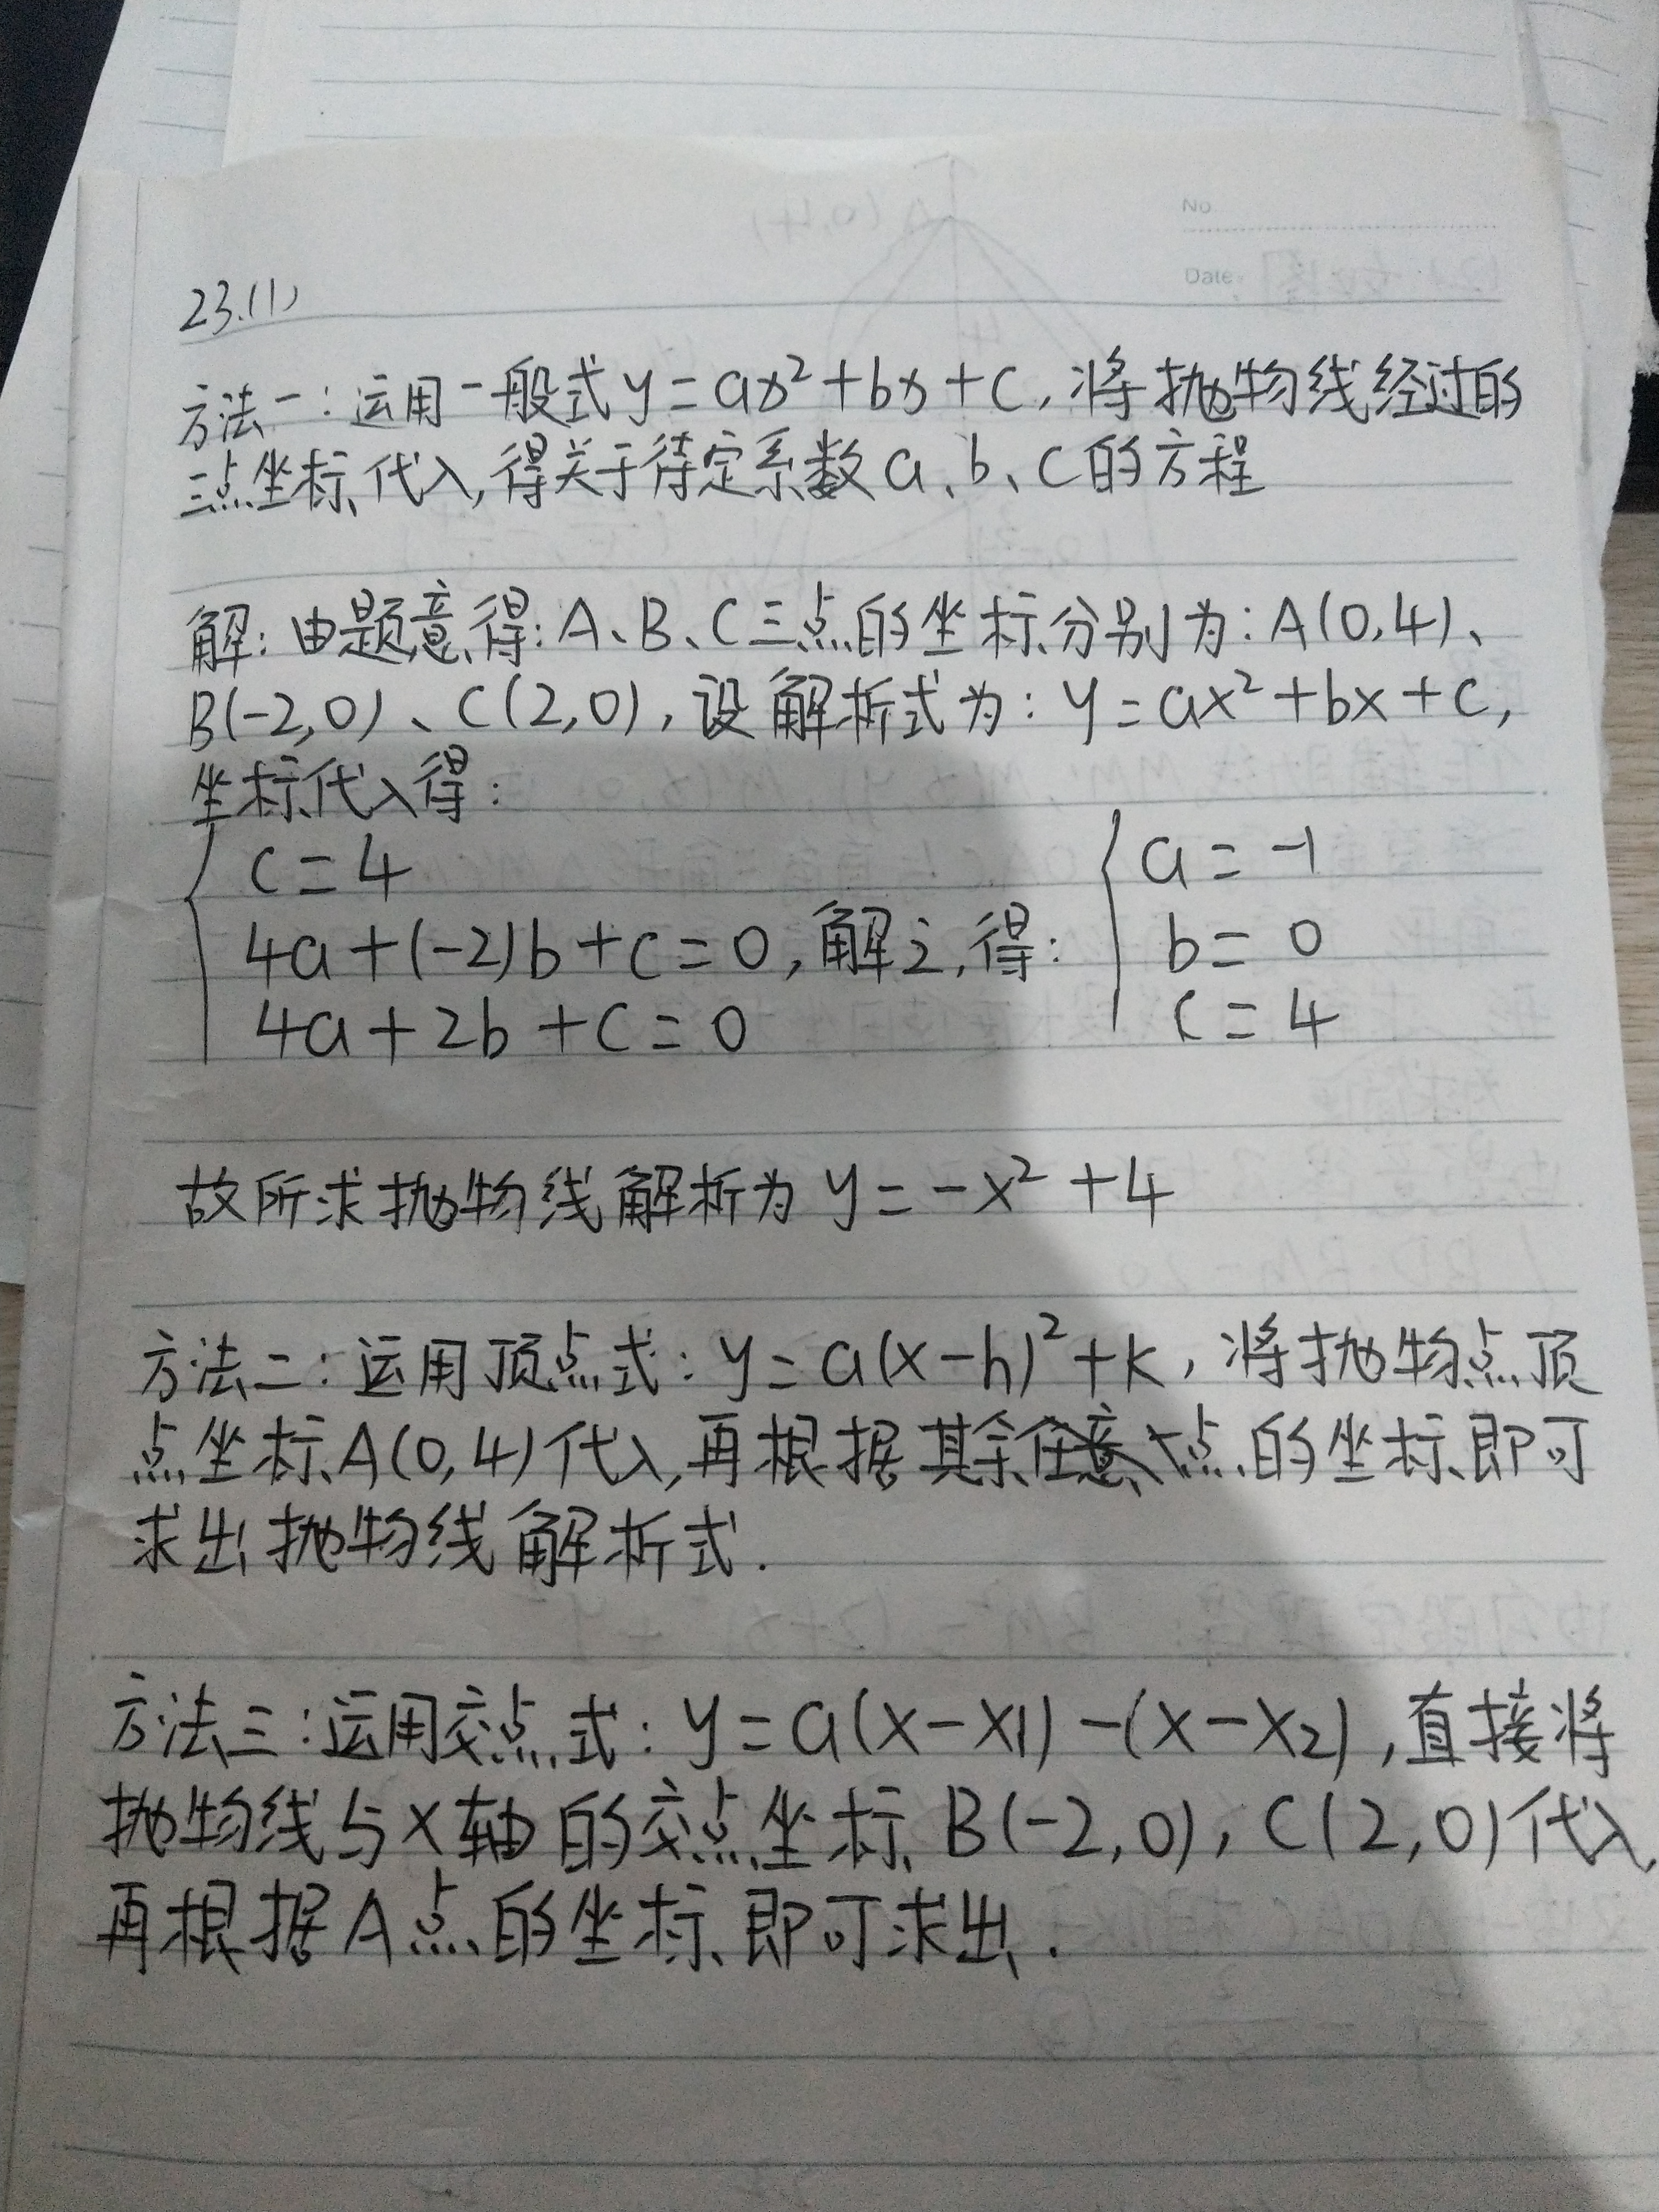 No
Date:
23.(1)
方法一:运用一般式y=ax²+bx+c,将抛物线经过的
三点坐标代入,得关于待定系数a、b、c的方程
解:由题意得:A、B、C三点的坐标分别为:A(0,4)、
B(-2,0)、C(2,0),设解析式为:y=ax²+bx+c,
坐标代入得:
{ c=4
4a+(-2)b+c=0,解之,得:
4a+2b+c=0
{ a=-1
b=0
c=4
故所求抛物线解析为y=-x²+4
方法二:运用顶点式:y=a(x-h)²+k,将抛物点顶
点坐标A(0,4)代入,再根据其余任意一点的坐标即可
求出抛物线解析式.
方法三:运用交点式:y=a(x-x1)-(x-x2),直接将
抛物线与x轴的交点坐标B(-2,0),C(2,0)代入,
再根据A点的坐标即可求出.